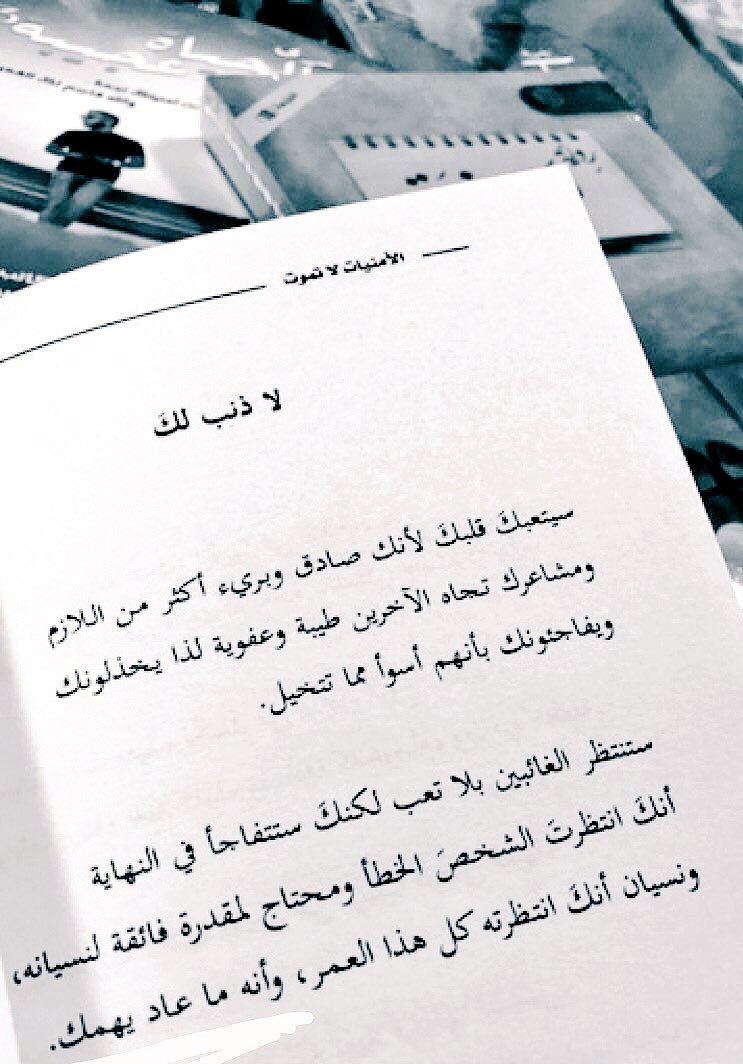 الأمنيات لا تموت
لا ذنب لكَ
سيتعبكَ قلبكَ لأنك صادق وبريء أكثر من اللازم
ومشاعرك تجاه الآخرين طيبة وعفوية لذا يخذلونك
ويفاجئونك بأنهم أسوأ مما تتخيل.
ستنتظر الغائبين بلا تعب لكنكَ ستتفاجأ في النهاية
أنكَ انتظرتَ الشخصَ الخطأ ومحتاج لمقدرة فائقة لنسيانه،
ونسيان أنكَ انتظرته كل هذا العمر، وأنه ما عاد يهمك.